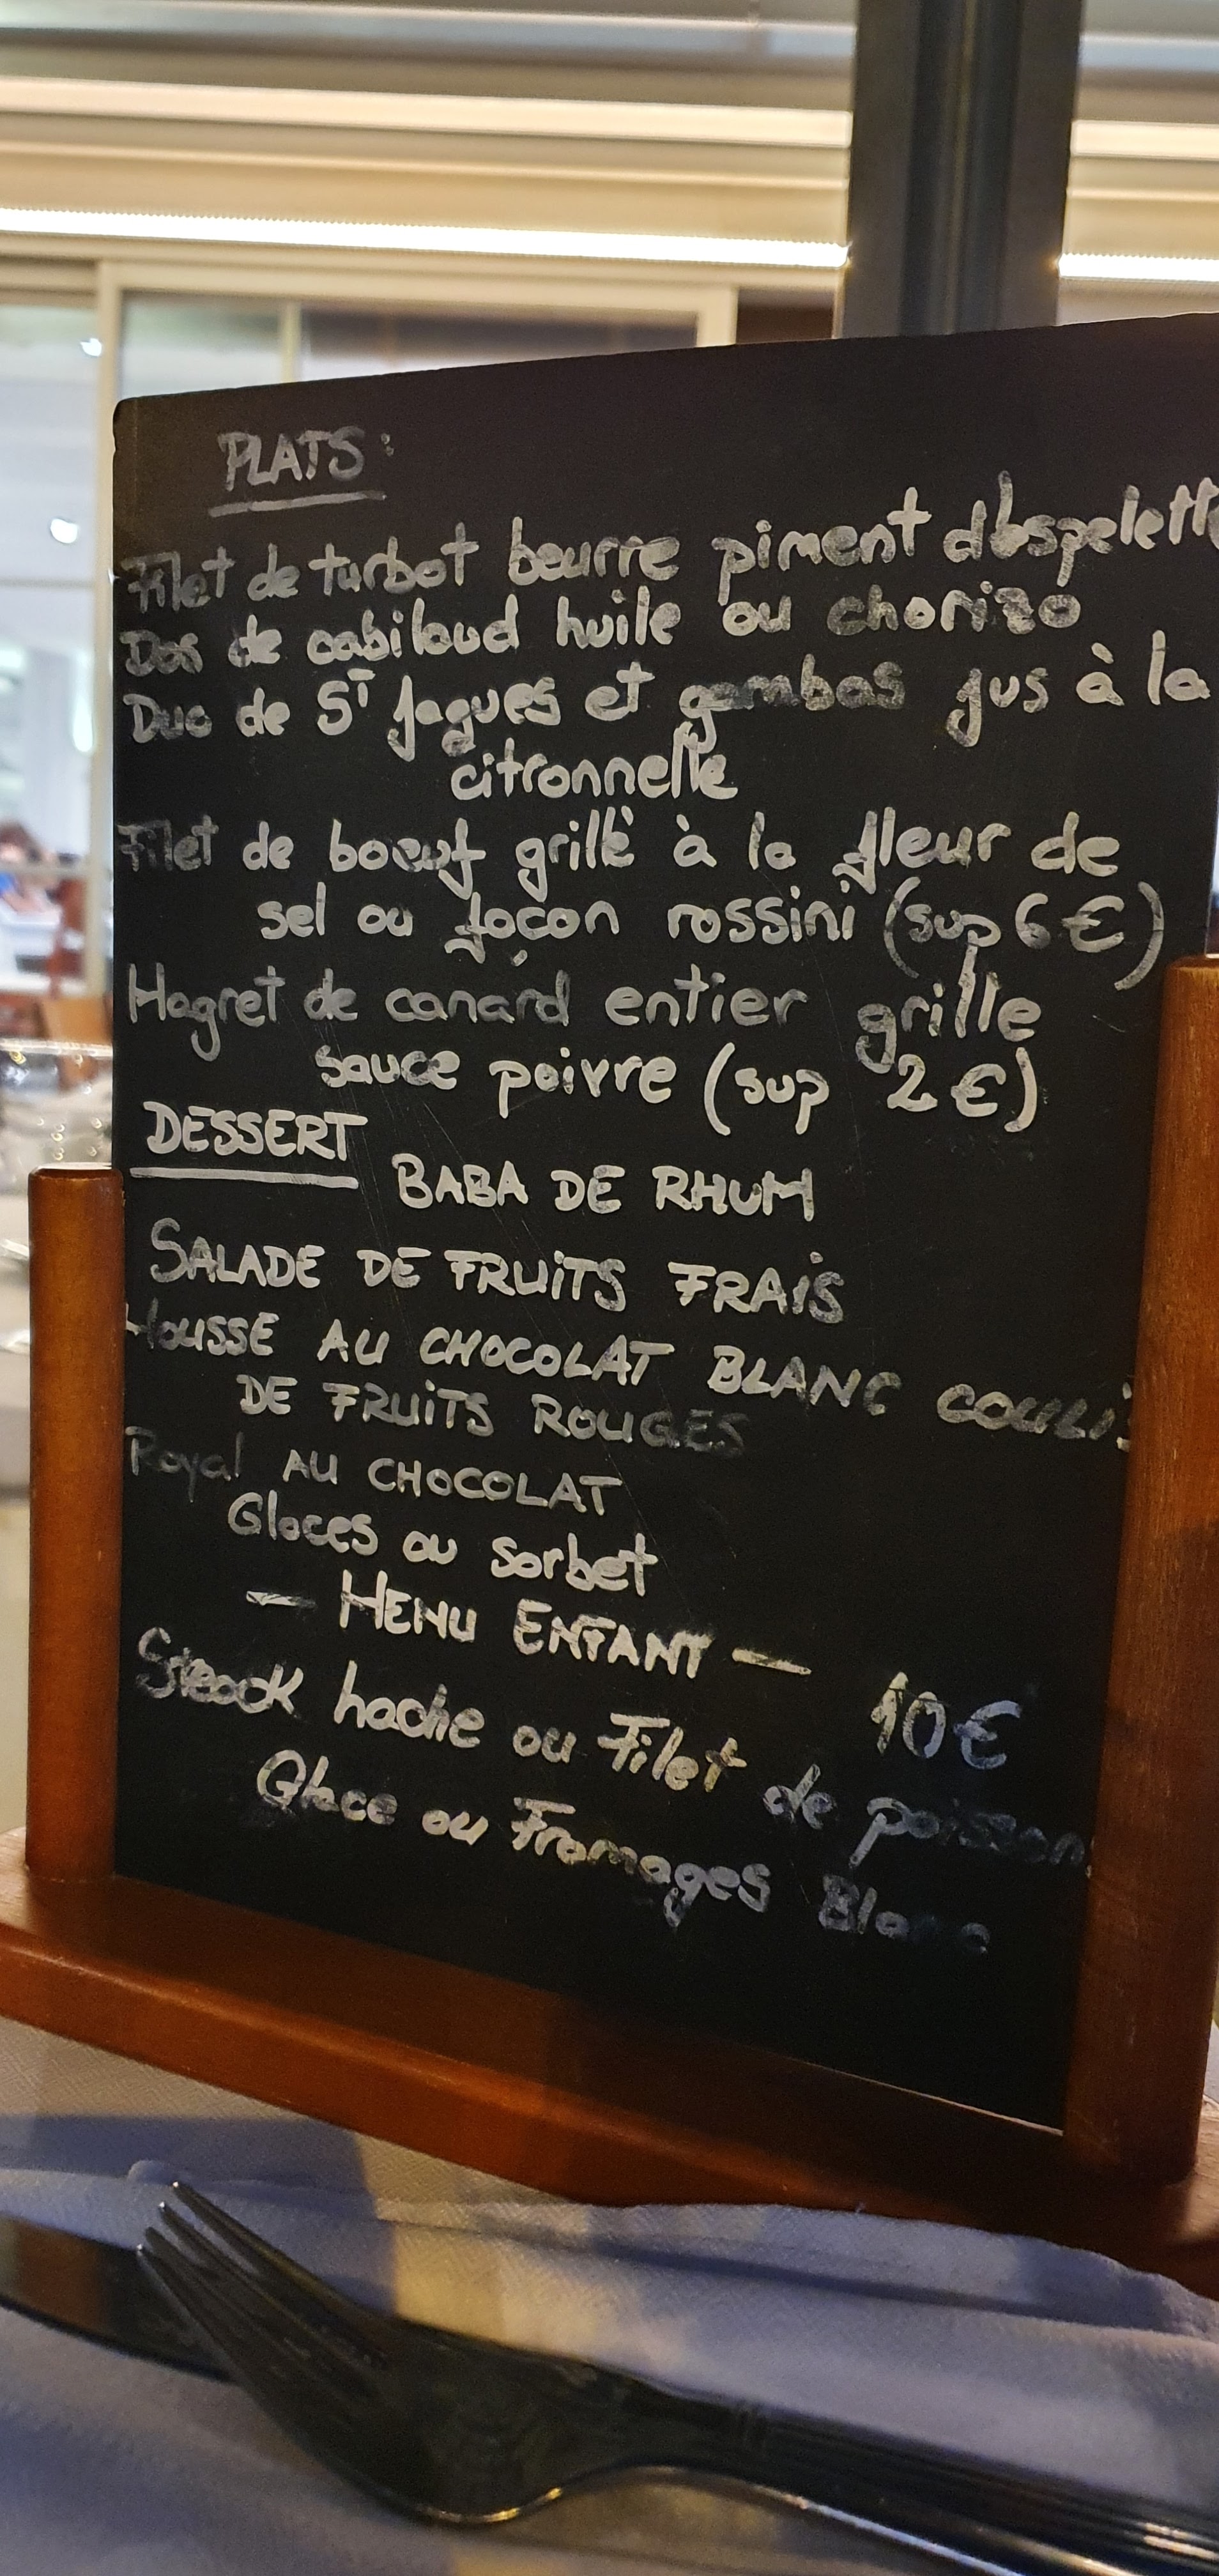 PLATS :
Filet de turbot beurre piment d'espelette
Dos de cabillaud huile ou chorizo
Duo de ST Jaques et gambas jus à la
citronnelle
Filet de boeuf grillé à la fleur de
sel ou façon rossini (sup 6 €)
Magret de canard entier grille
sauce poivre (sup 2 €)
DESSERT
BABA DE RHUM
SALADE DE FRUITS FRAIS
MOUSSE AU CHOCOLAT BLANC COULIS
DE FRUITS ROUGES
Royal AU CHOCOLAT
Glaces ou sorbet
— MENU ENFANT — 10 €
Steack hache ou Filet de poisson
Glace ou Fromages Blanc